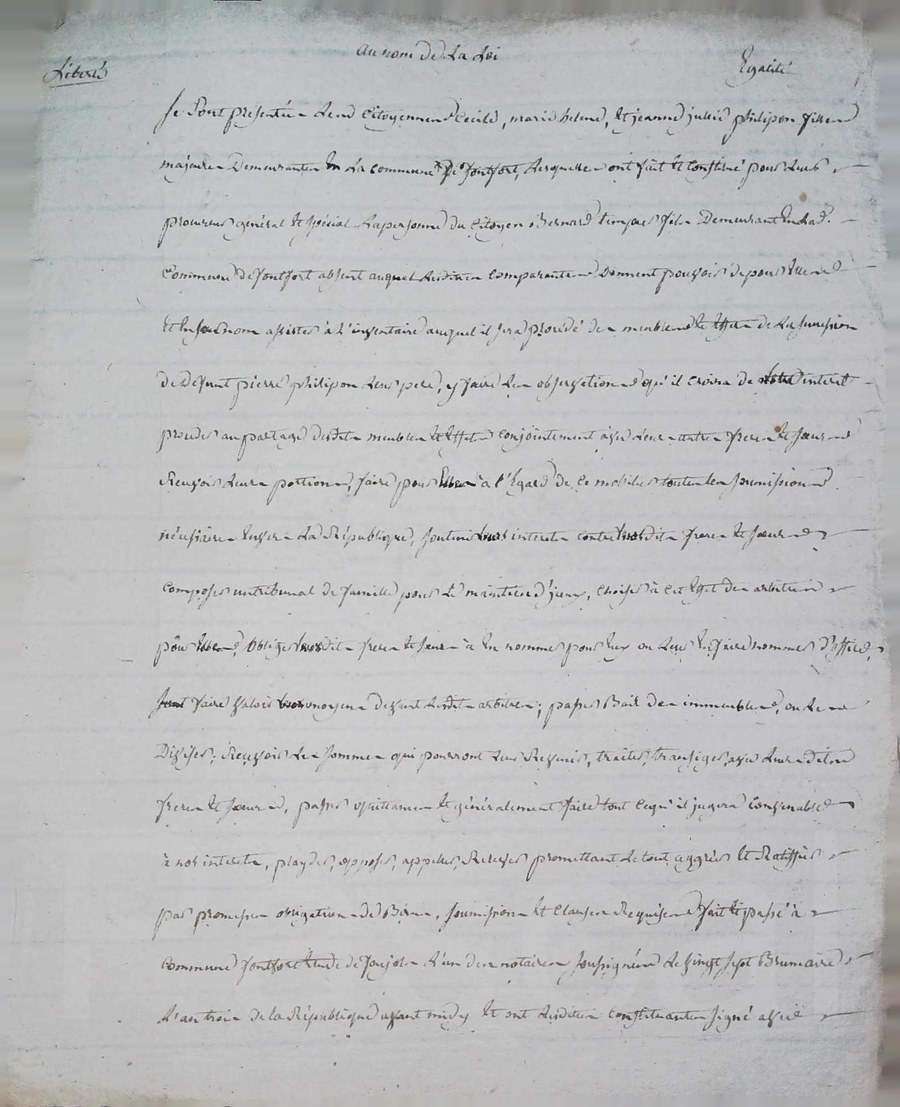 au nom de La Loi
Liberté Egalité
Se sont présentées Les Citoyennes Cecile, marie helene, Et jeanne julie philipon filles
majeures Demeurantes En La commune De fontfort, Lesquelles ont fait Et Constitué pour Leur
procureur général Et spécial La personne du Citoyen Bernard fils Demeurant En Lad.
Commune De fontfort absent auquel Lesdittes Comparantes Donnent pouvoir de pour Elles
Et En Leur nom assister à L'inventaire auquel il sera procédé des meubles Et Effets de La succession
de Defunt pierre philipon Leur pere, y faire Les observations qu'il croira de interet
proceder au partage desdits meubles Et Effets conjointement avec Leurs autres freres Et sœurs
Recevoir Leurs portions, faire pour Elles à l'Egard de Ce mobilier toutes Les soumissions
nécessaires Envers La République, soutenir Leurs interets contre Leursdits freres Et sœurs
composer un tribunal de famille pour Le maintien d'iceux, choisir à cet Effet des arbitres
pour Elles, obliger Leursdits freres Et sœurs à En nommer pour Eux ou Leur En faire nommer d'office,
faire valoir Leurs moyens devant Lesdits arbitres; passer Bail des immeubles, ou Les
Diviser, Recevoir Les sommes qui pourront Leur Revenir, traiter, transiger avec Leursdits
freres Et sœurs, passer quittances Et généralement faire tout Ce qu'il jugera Convenable
à nos interets, playder, opposer, appeller, Relever promettant Le tout aggréer Et Ratiffier
par promesses obligations de Biens, soumissions Et Clauses Requises fait Et passé à
Commune fontfort Etude de L'un des notaires soussignés Le Vingt sept Brumaire
L'an trois de la République avant midy Et ont Lesdittes constituantes signé avec